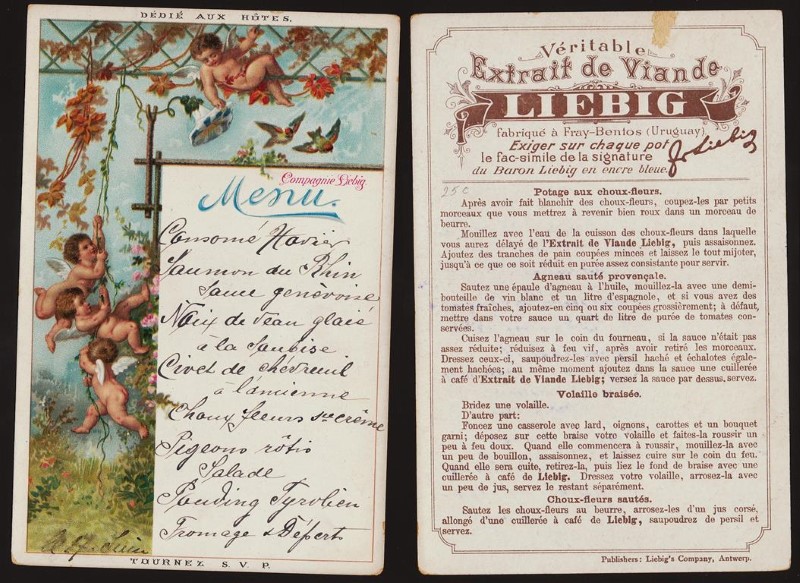 DÉDIÉ AUX HÔTES.
Compagnie Liebig.
Menu.
Consomé Xavier
Saumon du Rhin
Sauce genèvoise
Noix de veau glacé
à la Soubise
Civet de chevreuil
à l'ancienne
Choux fleurs sce crême
Pigeons rôtis
Salade
Pouding Tyrolien
Fromage & Désserts
TOURNEZ S. V. P.
Véritable
Extrait de Viande
LIEBIG
fabriqué à Fray-Bentos (Uruguay)
Exiger sur chaque pot
le fac-simile de la signature
du Baron Liebig en encre bleue.
J v Liebig
25 c
Potage aux choux-fleurs.
Après avoir fait blanchir des choux-fleurs, coupez-les par petits
morceaux que vous mettrez à revenir bien roux dans un morceau de
beurre.
Mouillez avec l'eau de la cuisson des choux-fleurs dans laquelle
vous aurez délayé de l'Extrait de Viande Liebig, puis assaisonnez.
Ajoutez des tranches de pain coupées minces et laissez le tout mijoter,
jusqu'à ce que ce soit réduit en purée assez consistante pour servir.
Agneau sauté provençale.
Sautez une épaule d'agneau à l'huile, mouillez-la avec une demi-
bouteille de vin blanc et un litre d'espagnole, et si vous avez des
tomates fraîches, ajoutez-en cinq ou six coupées grossièrement; à défaut,
mettre dans votre sauce un quart de litre de purée de tomates con-
servées.
Cuisez l'agneau sur le coin du fourneau, si la sauce n'était pas
assez réduite; réduisez à feu vif, après avoir retiré les morceaux.
Dressez ceux-ci, saupoudrez-les avec persil haché et échalotes égale-
ment hachées; au même moment ajoutez dans la sauce une cuillerée
à café d'Extrait de Viande Liebig; versez la sauce par dessus, servez.
Volaille braisée.
Bridez une volaille.
D'autre part:
Foncez une casserole avec lard, oignons, carottes et un bouquet
garni; déposez sur cette braise votre volaille et faites-la roussir un
peu à feu doux. Quand elle commencera à roussir, mouillez-la avec
un peu de bouillon, assaisonnez, et laissez cuire sur le coin du feu.
Quand elle sera cuite, retirez-la, puis liez le fond de braise avec une
cuillerée à café de Liebig. Dressez votre volaille, arrosez-la avec
un peu de jus, servez le restant séparément.
Choux-fleurs sautés.
Sautez les choux-fleurs au beurre, arrosez-les d'un jus corsé,
allongé d'une cuillerée à café de Liebig, saupoudrez de persil et
servez.
Publishers: Liebig's Company, Antwerp.